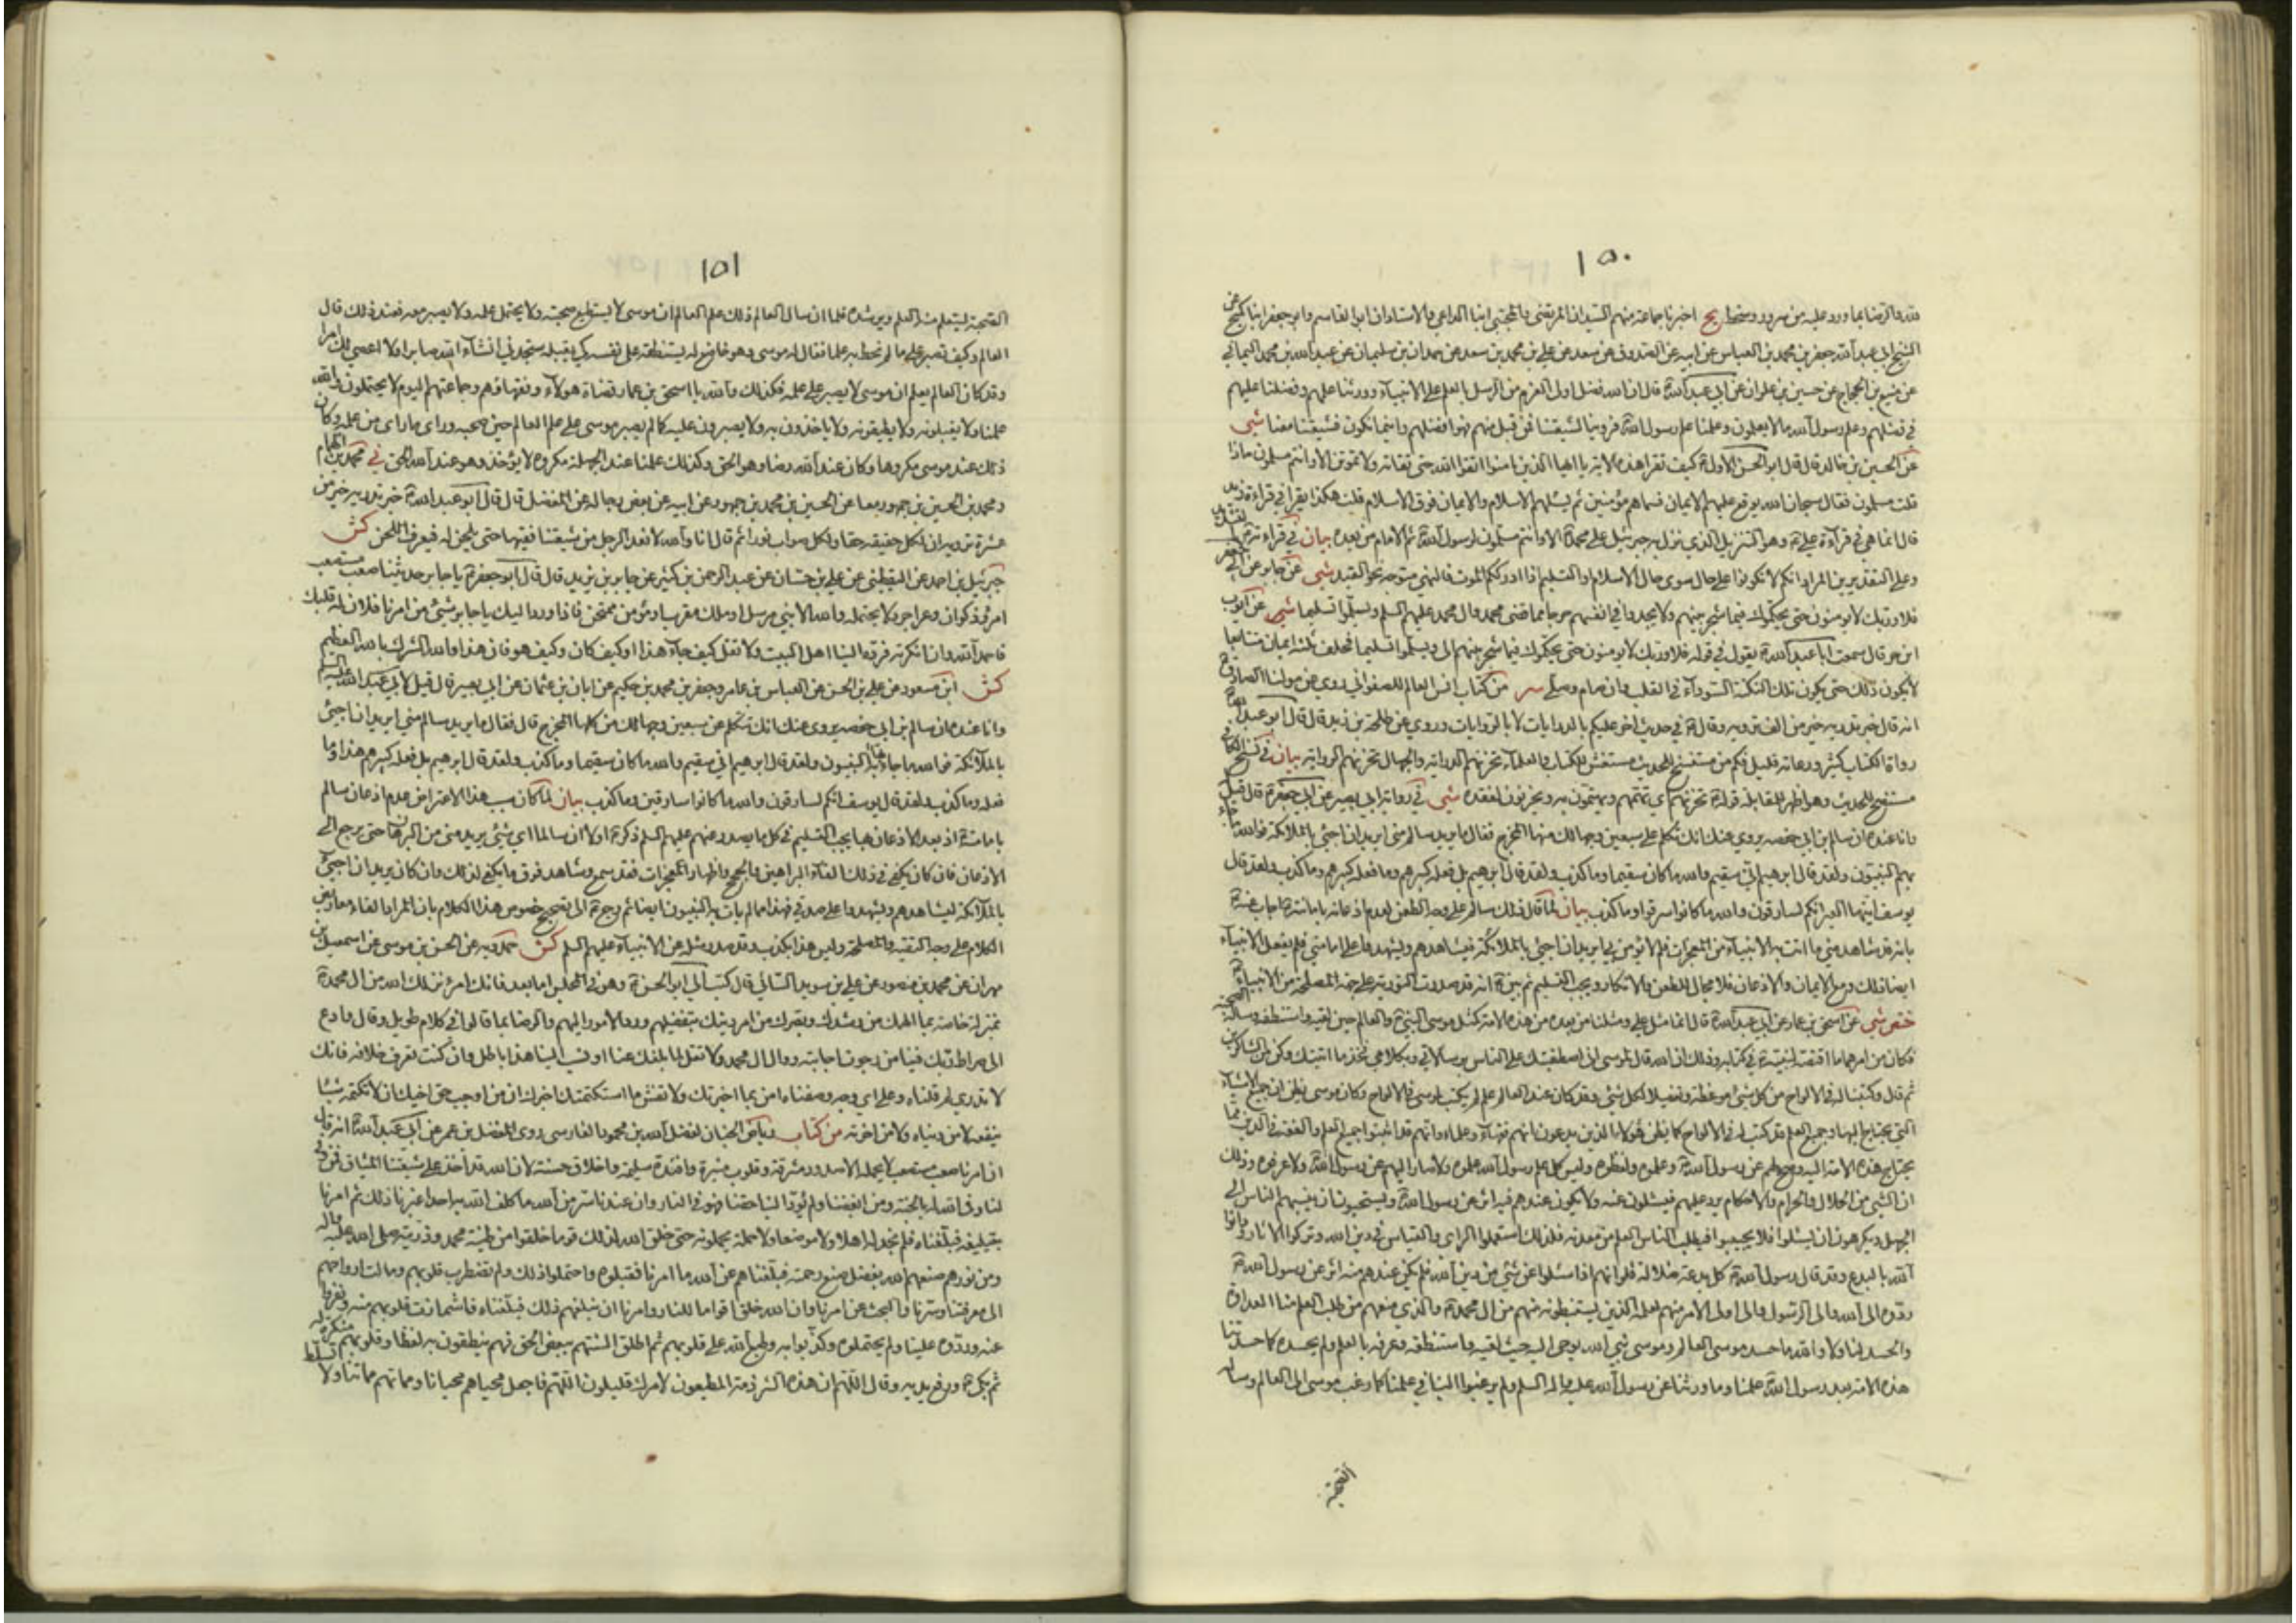 ١٥٠
قلبه والرضا بما ورد عليه من سرور وسخط يج اخبرنا جماعة منهم السيدان المرتضى والمجتبى ابنا الداعي والاستادان ابو القاسم وابو جعفر ابنا كميح عن
الشيخ ابي عبد الله جعفر بن محمد بن العباس عن ابيه عن الصدوق عن سعد عن علي بن محمد بن سعد عن حمدان بن سليمان عن عبد الله بن محمد اليماني
عن منيع بن الحجاج عن حسين بن علوان عن ابي عبد الله ع قال ان الله فضل اولي العزم من الرسل بالعلم على الانبياء وورثنا علمهم وفضلنا عليهم
في فضلهم وعلم رسول الله ما لا يعلمون وعلمنا علم رسول الله ص فروينا لشيعتنا فمن قبل منهم فهو افضلهم واينما نكون فشيعتنا معنا شي
عن الحسين بن خالد قال قال ابو الحسن الاول ع كيف تقرا هذه الاية يا ايها الذين امنوا اتقوا الله حق تقاته ولا تموتن الا وانتم مسلمون ماذا
قلت مسلمون فقال سبحان الله يوقع عليهم الايمان فسماهم مؤمنين ثم يسئلهم الاسلام والايمان فوق الاسلام قلت هكذا يقرا في قراءة زيد
قال انما هي في قراءة علي ع وهو التنزيل الذي نزل به جبرئيل على محمد ص الا وانتم مسلمون لرسول الله ص ثم الامام من بعده بيان في قراءته ع بالتشديد
وعلى التقديرين المراد انكم لا تكونوا على حال سوى حال الاسلام او التسليم اذا ادرككم الموت فالنهي متوجه نحو القيد شي عن جابر عن ابي جعفر
فلا وربك لا يؤمنون حتى يحكموك فيما شجر بينهم ولا يجدوا في انفسهم حرجا مما قضى محمد وال محمد عليهم السلم ويسلموا تسليما شي عن ايوب
ابن حر قال سمعت ابا عبد الله ع يقول في قوله فلا وربك لا يؤمنون حتى يحكموك فيما شجر بينهم الى ويسلموا تسليما فحلف ثلثة ايمان متتابعا
لا يكون ذلك حتى يكون تلك النكتة السوداء في القلب وان صام وصلى سر من كتاب انس العالم للصفواني روى عن مولنا الصادق ع
انه قال خبر تدريه خير من الف ترويه وقال ع في حديث اخر عليكم بالدرايات لا بالروايات وروى عن طلحة بن زيد قال قال ابو عبد الله ع
رواة الكتاب كثير ورعاته قليل فكم من مستنصح للحديث مستغش للكتاب والعلماء تحزنهم الدراية والجهال تحزنهم الرواية بيان في نسخ الكافي
مستنصح للحديث وهو اظهر للمقابلة قوله ع تحزنهم اي تهمهم ويهتمون به ويحزنون لفقده شي في رواية ابي بصير عن ابي جعفر ع قال قيل له
وانا عنده ان سالم بن ابي حفصة يروي عنك انك تكلم على سبعين وجها لك منها المخرج فقال ما يريد سالم مني ايريد ان اجيئ بالملائكة فوالله ما جاء
بهم النبيون ولقد قال ابرهيم اني سقيم والله ما كان سقيما وما كذب ولقد قال ابرهيم بل فعله كبيرهم وما فعله كبيرهم وما كذب ولقد قال
يوسف ايتها العير انكم لسارقون والله ما كانوا سرقوا وما كذب بيان لما قال ذلك سالم على وجه الطعن لعدم اذعانه بامامته ع اجاب عنه ع
بانه قد شاهد مني ما اتت به الانبياء من المعجزات فلم لا تؤمن بي ايريد ان اجيئ بالملائكة فيشاهدهم ويشهدوا على امامتي فلم يفعل الانبياء
ايضا ذلك ومع الايمان والاذعان فلا مجال للطعن والانكار ويجب التسليم ثم بين ع انه قد صدرت التورية على جهة المصلحة من الانبياء ع
ختص شي عن اسحق بن عمار عن ابي عبد الله ع قال انما مثل علي ومثلنا من بعده من هذه الامة كمثل موسى النبي ع والعالم حين لقيه واستنطقه وساله الصحبة
فكان من امرهما ما اقتصه لنبيه ص في كتابه وذلك ان الله قال لموسى اني اصطفيتك على الناس برسالاتي وبكلامي فخذ ما اتيتك وكن من الشاكرين
ثم قال وكتبنا له في الالواح من كل شئ موعظة وتفصيلا لكل شئ وقد كان عند العالم علم لم يكتب لموسى في الالواح وكان موسى يظن ان جميع الاشياء
التي يحتاج اليها وجميع العلم قد كتب له في الالواح كما يظن هؤلاء الذين يدعون انهم فقهاء وعلماء وانهم قد اثبتوا جميع العلم والفقه في الدين مما
يحتاج هذه الامة اليه وصح لهم عن رسول الله ص وعلموه ولفظوه وليس كل علم رسول الله علموه ولا صار اليهم عن رسول الله ص ولا عرفوه وذلك
ان الشئ من الحلال والحرام والاحكام يرد عليهم فيسئلون عنه ولا يكون عندهم فيه اثر عن رسول الله ص ويستحيون ان ينسبهم الناس الى
الجهل ويكرهون ان يسئلوا فلا يجيبوا فيطلب الناس العلم من معدنه فلذلك استعملوا الراي والقياس في دين الله وتركوا الاثار ودانوا
الله بالبدع وقد قال رسول الله ص كل بدعة ضلالة فلو انهم اذا سئلوا عن شئ من دين الله فلم يكن عندهم منه اثر عن رسول الله ص
ردوه الى الله والى الرسول والى اولي الامر منهم لعلمه الذين يستنبطونه منهم من ال محمد ص والذي منعهم من طلب العلم منا العداوة
والحسد لنا ولا والله ما حسد موسى العالم وموسى نبي الله يوحى اليه حيث لقيه واستنطقه وعرفه بالعلم ولم يحسده كما حسدتنا
هذه الامة بعد رسول الله ص علمنا وما ورثنا عن رسول الله عليه واله السلم ولم يرغبوا الينا في علمنا كما رغب موسى الى العالم وساله
الصحبة
١٥١
الصحبة ليتعلم منه العلم ويرشده فلما ان سال العالم ذلك علم العالم ان موسى لا يستطيع صحبته ولا يحتمل علمه ولا يصبر معه فعند ذلك قال
العالم وكيف تصبر على ما لم تحط به علما فقال له موسى وهو خاضع له يستنطقه على نفسه كي يقبله ستجدني انشاء الله صابرا ولا اعصي لك امرا
وقد كان العالم يعلم ان موسى لا يصبر على علمه فكذلك والله يا اسحق بن عمار قضاة هؤلاء وفقهاؤهم وجماعتهم اليوم لا يحتملون والله
علمنا ولا يقبلونه ولا يطيقونه ولا ياخذون به ولا يصبرون عليه كما لم يصبر موسى على علم العالم حين صحبه وراى ما راى من علمه وكان
ذلك عند موسى مكروها وكان عند الله رضا وهو الحق وكذلك علمنا عند الجهلة مكروه لا يؤخذ وهو عند الله الحق ني محمد بن همام
ومحمد بن الحسين بن جمهور معا عن الحسين بن محمد بن جمهور عن ابيه عن بعض رجاله عن المفضل قال قال ابو عبد الله ع خبر تدريه خير من
عشرة ترويه ان لكل حقيقة حقا ولكل صواب نورا ثم قال انا والله لا نعد الرجل من شيعتنا فقيها حتى يلحن له فيعرف اللحن كش
جبرئيل بن احمد عن اليقطيني عن علي بن حسان عن عبد الرحمن بن كثير عن جابر بن يزيد قال قال ابو جعفر ع يا جابر حديثنا صعب مستصعب
امرد ذكوان وعر اجرد لا يحتمله والله الا نبي مرسل او ملك مقرب او مؤمن ممتحن فاذا ورد اليك يا جابر شئ من امرنا فلان له قلبك
فاحمد الله وان انكرته فرده الينا اهل البيت ولا تقل كيف جاء هذا او كيف كان وكيف هو فان هذا والله الشرك بالله العظيم
كش ابن مسعود عن علي بن الحسن عن العباس بن عامر وجعفر بن محمد بن حكيم عن ابان بن عثمان عن ابي بصير قال قيل لابي عبد الله عليه السلم
وانا عنده ان سالم بن ابي حفصة يروي عنك انك تتكلم على سبعين وجها لك من كلها المخرج قال فقال ما يريد سالم مني ايريد ان اجيئ
بالملائكة فوالله ما جاء بها النبيون ولقد قال ابرهيم اني سقيم والله ما كان سقيما وما كذب ولقد قال ابرهيم بل فعله كبيرهم هذا وما
فعله وما كذب ولقد قال يوسف انكم لسارقون والله ما كانوا سارقين وما كذب بيان لما كان سبب هذا الاعتراض عدم اذعان سالم
بامامته ع اذ بعد الاذعان بها يجب التسليم في كل ما يصدر عنهم عليهم السلم ذكر ع اولا ان سالما اي شئ يريد مني من البرهان حتى يرجع الى
الاذعان فان كان يكفي في ذلك القاء البراهين والحجج واظهار المعجزات فقد سمع وشاهد فوق ما يكفي لذلك وان كان يريد ان اجيئ
بالملائكة ليشاهدهم ويشهدوا على صدقي فهذا مما لم يات به النبيون ايضا ثم رجع ع الى تصحيح خصوص هذا الكلام بان المراد القاء معاريض
الكلام على وجه التقية والمصلحة وليس هذا بكذب وقد صدر مثله عن الانبياء عليهم السلم كش حمدويه عن الحسن بن موسى عن اسمعيل بن
مهران عن محمد بن منصور عن علي بن سويد السائي قال كتب الي ابو الحسن ع وهو في الحبس اما بعد فانك امرؤ نزلك الله من ال محمد ع
بمنزلة خاصة بما الهمك من رشدك وبصرك من امر دينك بتفضيلهم ورد الامور اليهم والرضا بما قالوا في كلام طويل وقال وادع
الى صراط ربك فينا من رجوت اجابته ووال ال محمد ولا تقل لما بلغك عنا او نسب الينا هذا باطل وان كنت تعرف خلافه فانك
لا تدري لم قلناه وعلى اي وجه وصفناه امن بما اخبرتك ولا تفش ما استكتمتك اخبرك ان من اوجب حق اخيك ان لا تكتمه شيئا
ينفعه لا من دنياه ولا من اخرته من كتاب رياض الجنان لفضل الله بن محمود الفارسي روى المفضل بن عمر عن ابي عبد الله ع انه قال
ان امرنا صعب مستصعب لا يحمله الا صدور مشرقة وقلوب منيرة وافئدة سليمة واخلاق حسنة لان الله قد اخذ على شيعتنا الميثاق فمن وفى
لنا وفى الله له بالجنة ومن ابغضنا ولم يؤد الينا حقنا فهو في النار وان عندنا سرا من الله ما كلف الله به احدا غيرنا ذلك ثم امرنا
بتبليغه فبلغناه فلم نجد له اهلا ولا موضعا ولا حملة يحملونه حتى خلق الله لذلك قوما خلقوا من طينة محمد وذريته صلى الله عليه واله
ومن نورهم صنعهم الله بفضل صنع رحمته فبلغناهم عن الله ما امرنا فقبلوه واحتملوا ذلك ولم تضطرب قلوبهم ومالت ارواحهم
الى معرفتنا وسرنا والبحث عن امرنا وان الله خلق اقواما للنار وامرنا ان نبلغهم ذلك فبلغناه فاشمازت قلوبهم منه ونفروا
عنه وردوه علينا ولم يحتملوه وكذبوا به وطبع الله على قلوبهم ثم اطلق السنتهم ببعض الحق فهم ينطقون به لفظا وقلوبهم منكرة له
ثم بكى ع ورفع يديه وقال اللهم ان هذه الشرذمة المطيعون لامرك قليلون اللهم فاجعل محياهم محيانا ومماتهم مماتنا ولا تسلط